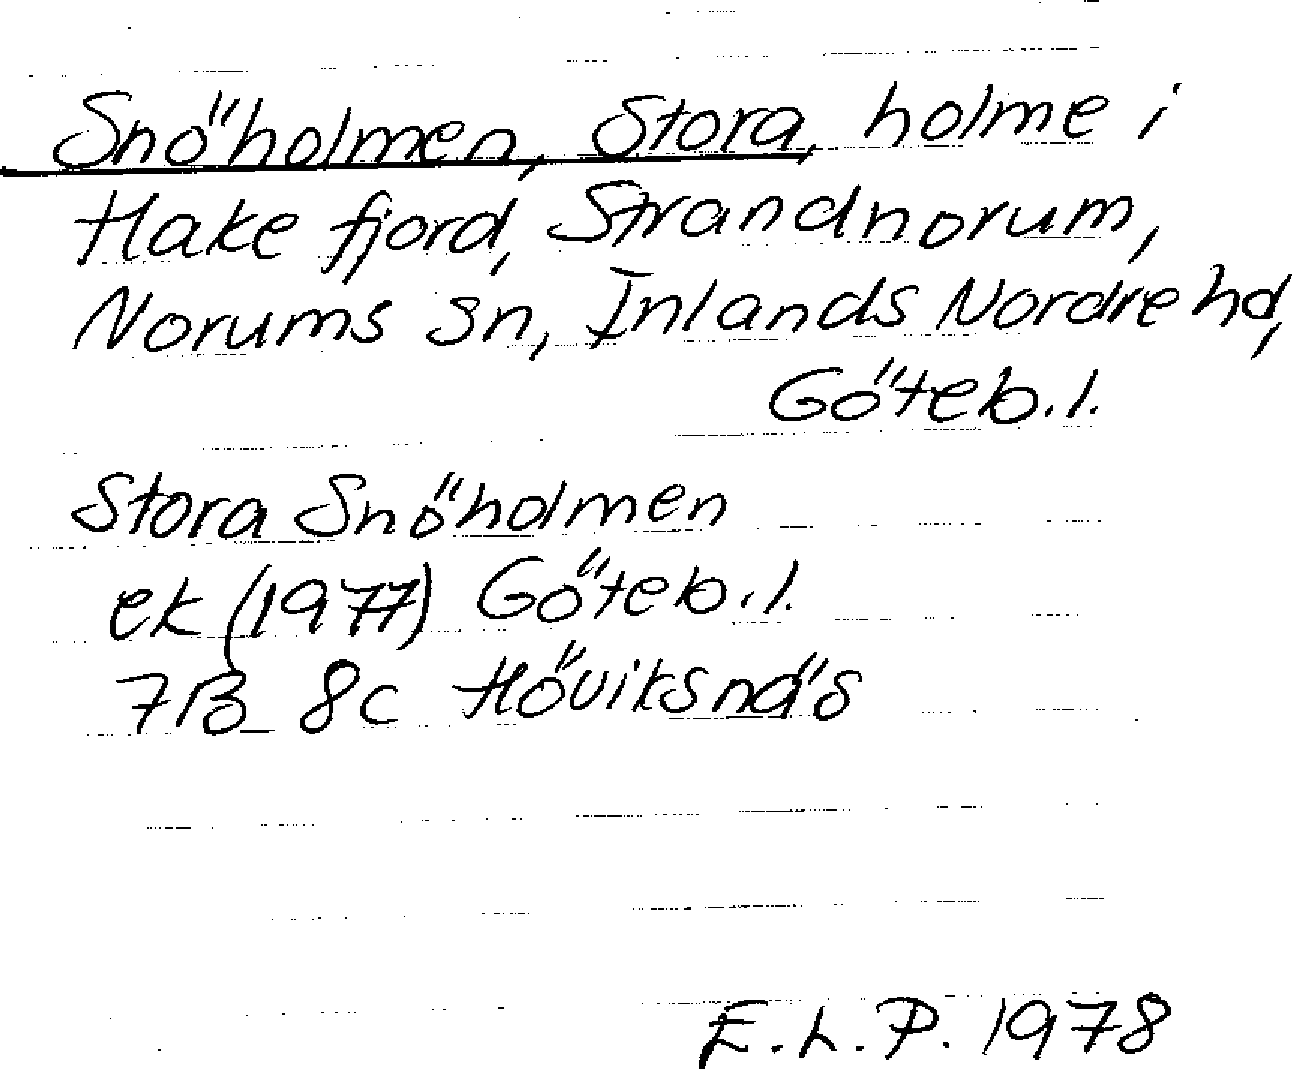 Snöholmen, Stora, holme i
Hake fjord, Strandnorum,
Norums sn, Inlands Nordre hd,
Göteb. l.
Stora Snöholmen
ek (1977) Göteb. l.
7B 8c Höviksnäs
E. L. P. 1978